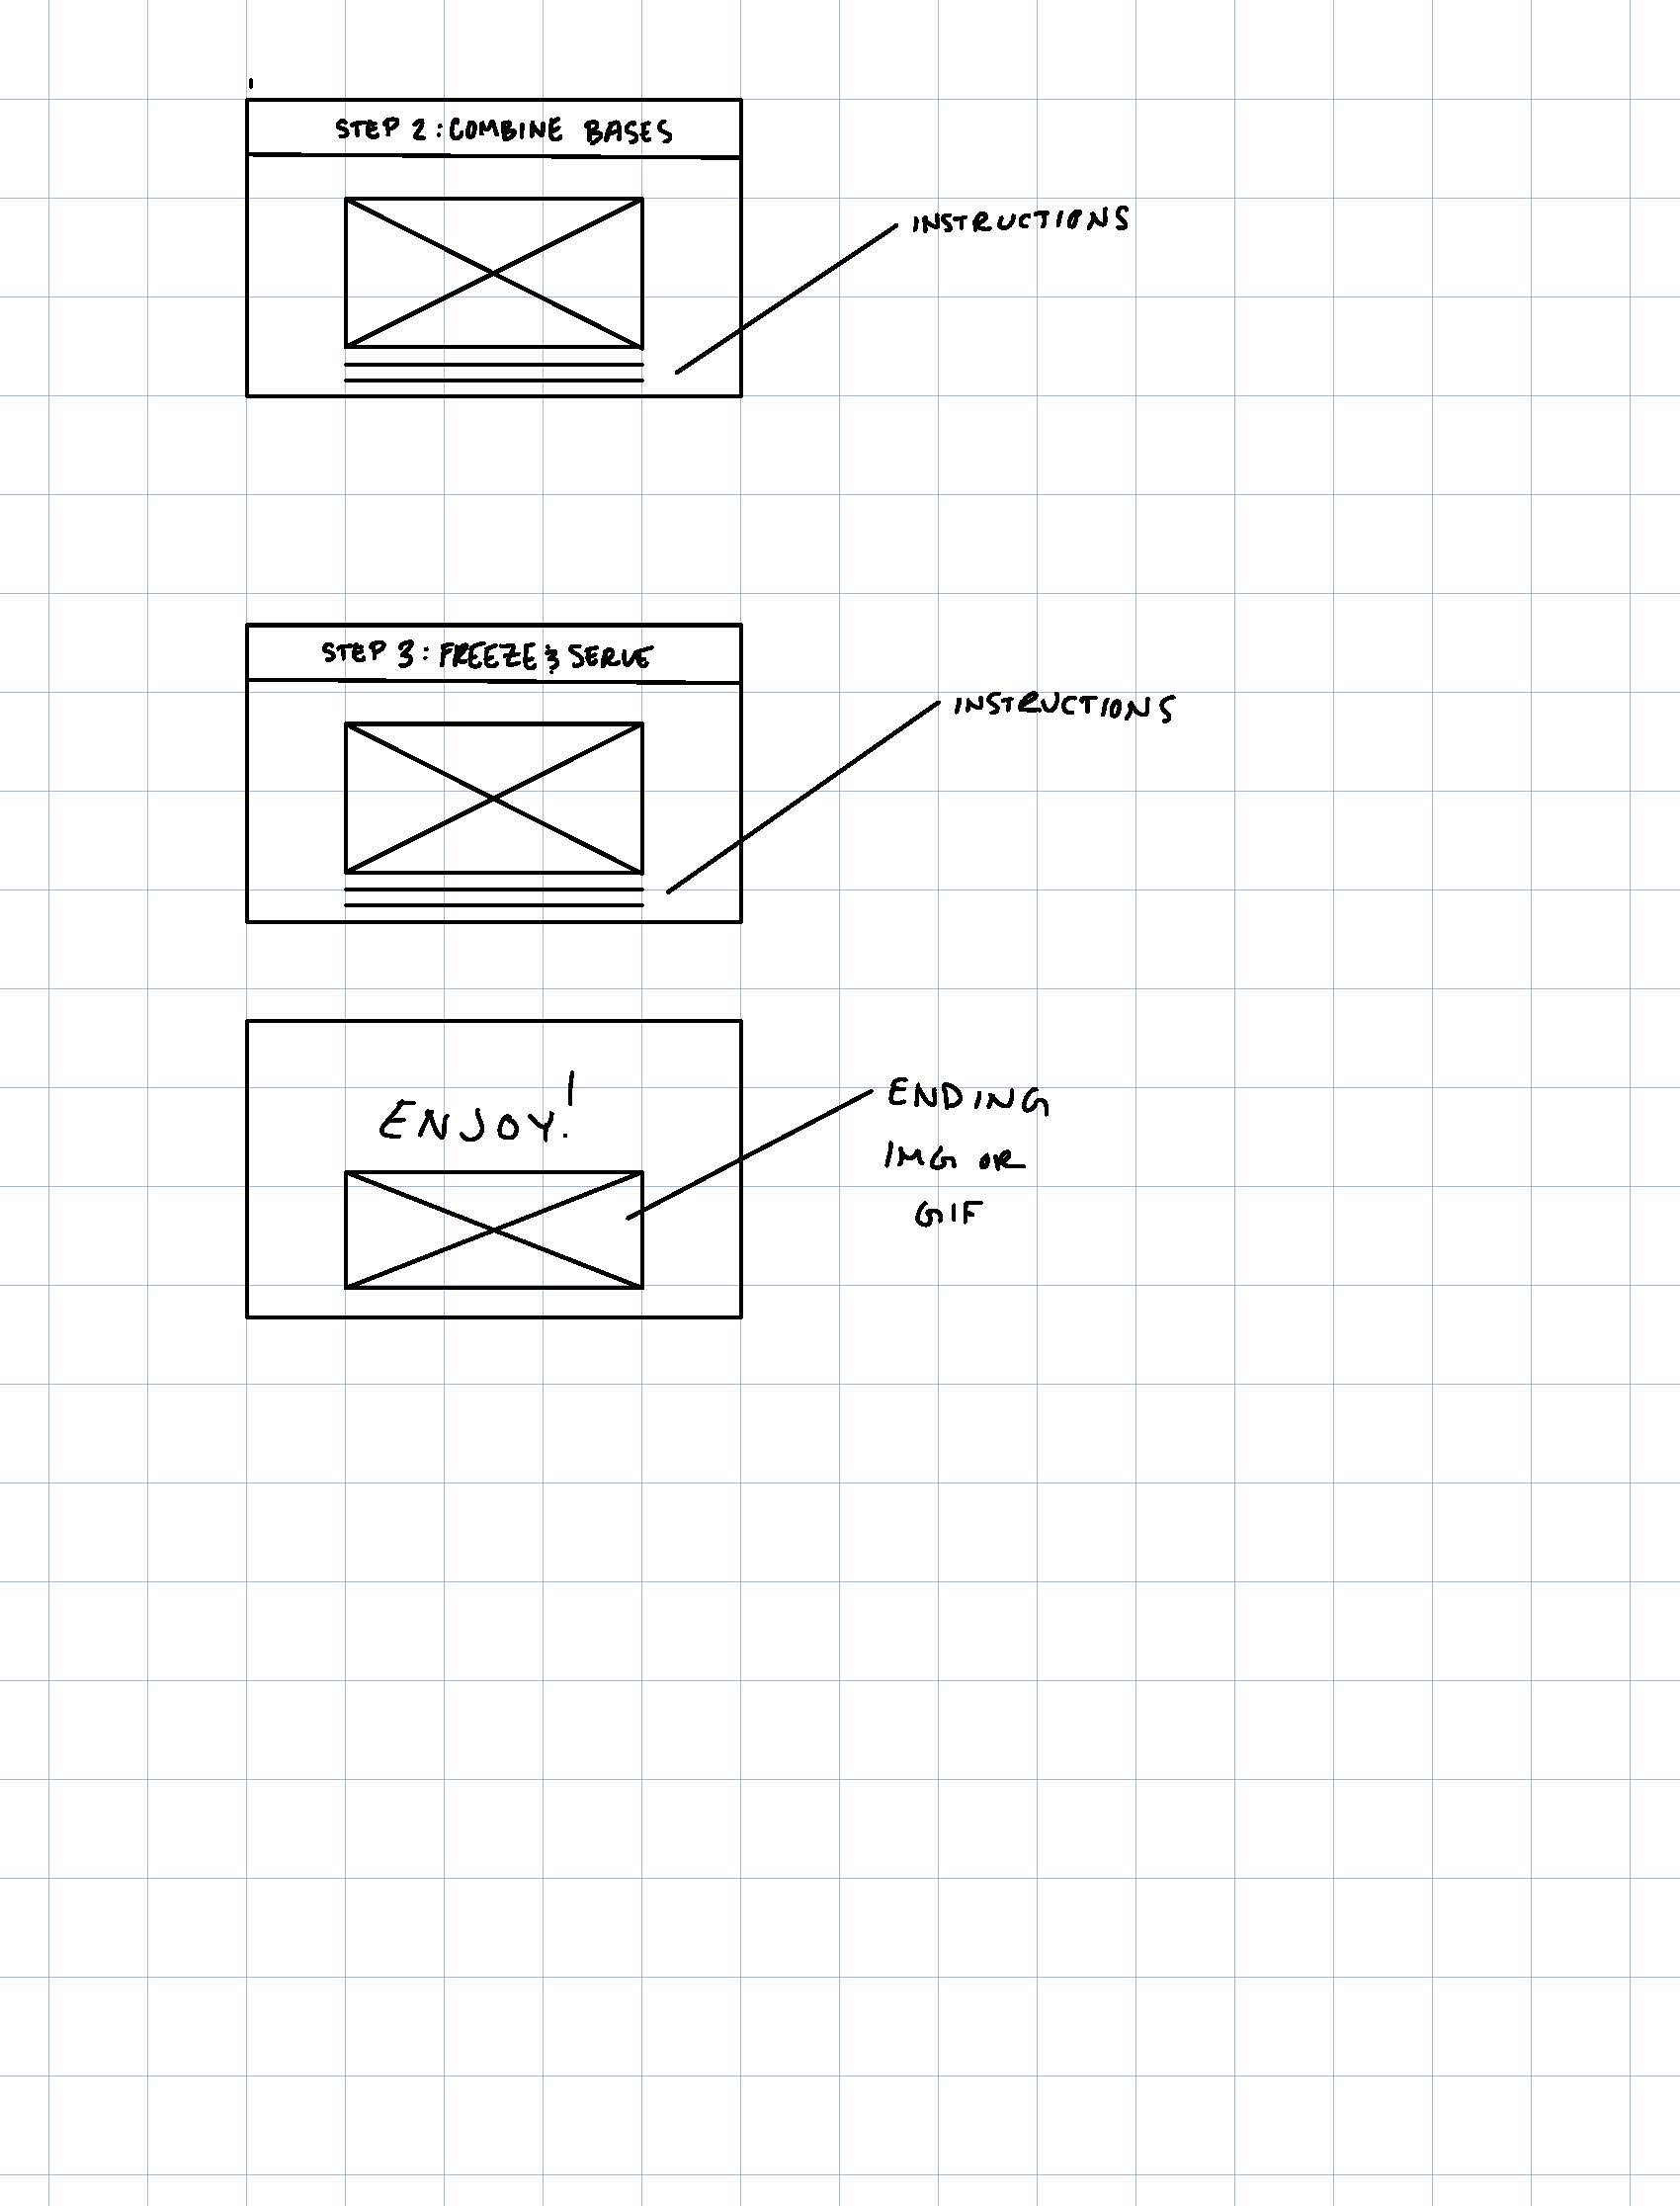 STEP 2: COMBINE BASES
INSTRUCTIONS
STEP 3: FREEZE & SERVE
INSTRUCTIONS
ENJOY!
ENDING
IMG OR
GIF